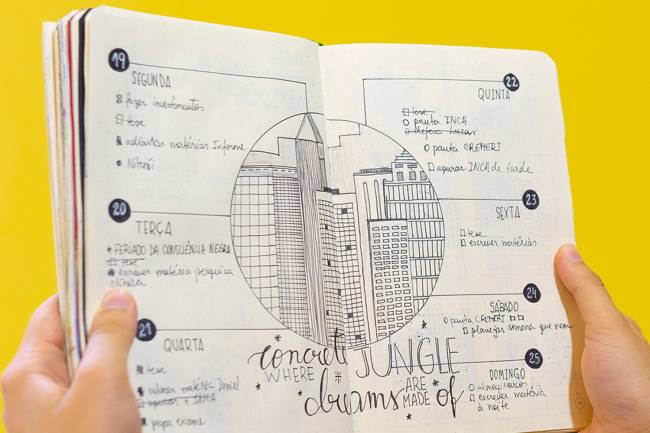 19
SEGUNDA
fazer investimentos
tese
adiantar matérias Informe
Niterói
20
TERÇA
FERIADO DA CONSCIÊNCIA NEGRA
tese
escrever matéria pesquisa
21
QUARTA
tese
matéria Daniel
apurar INCA
pegar exame
22
QUINTA
tese
pauta INCA
defesa Lucas
pauta CREMERJ
apurar INCA de tarde
23
SEXTA
tese
escrever matérias
24
SÁBADO
pauta CREMERJ
planejar semana que vem
25
DOMINGO
almoço Marcos
escrever matéria
à noite
concrete JUNGLE
WHERE
dreams ARE
MADE of